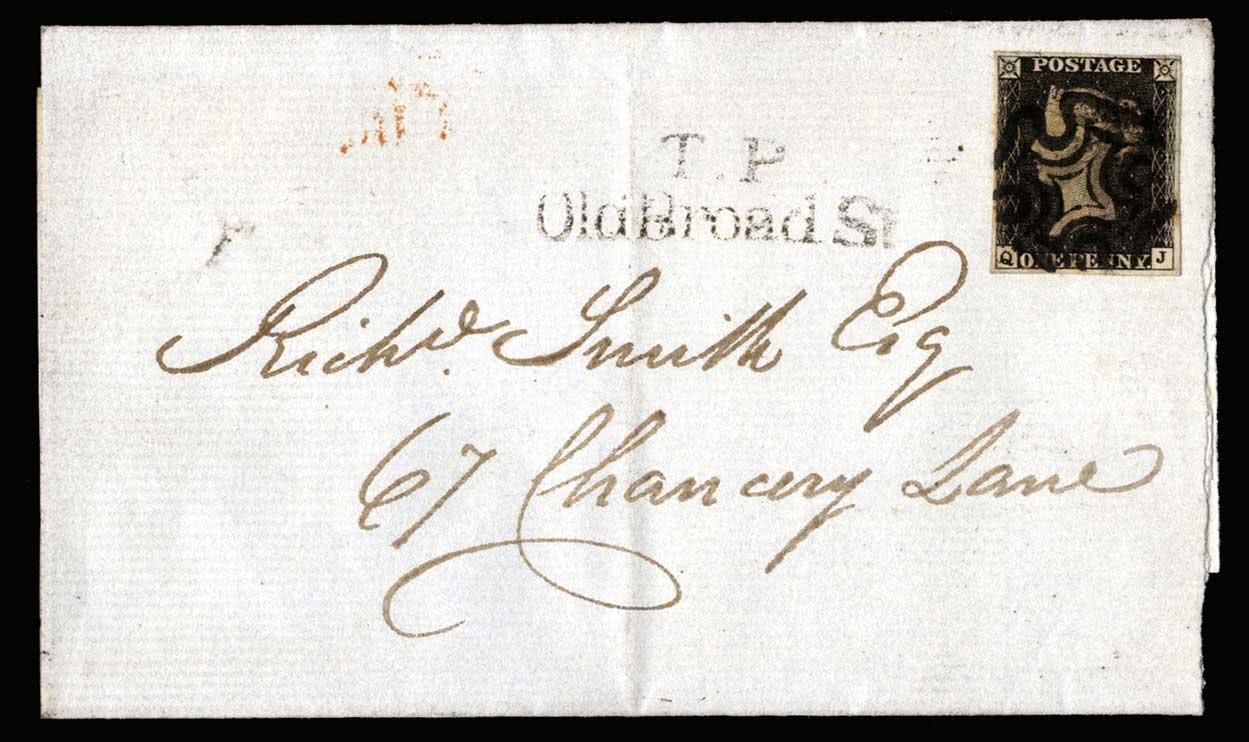 POSTAGE
T.P
Old Broad St
Q ONE PENNY. J
Richd. Smith Esq
67 Chancery Lane